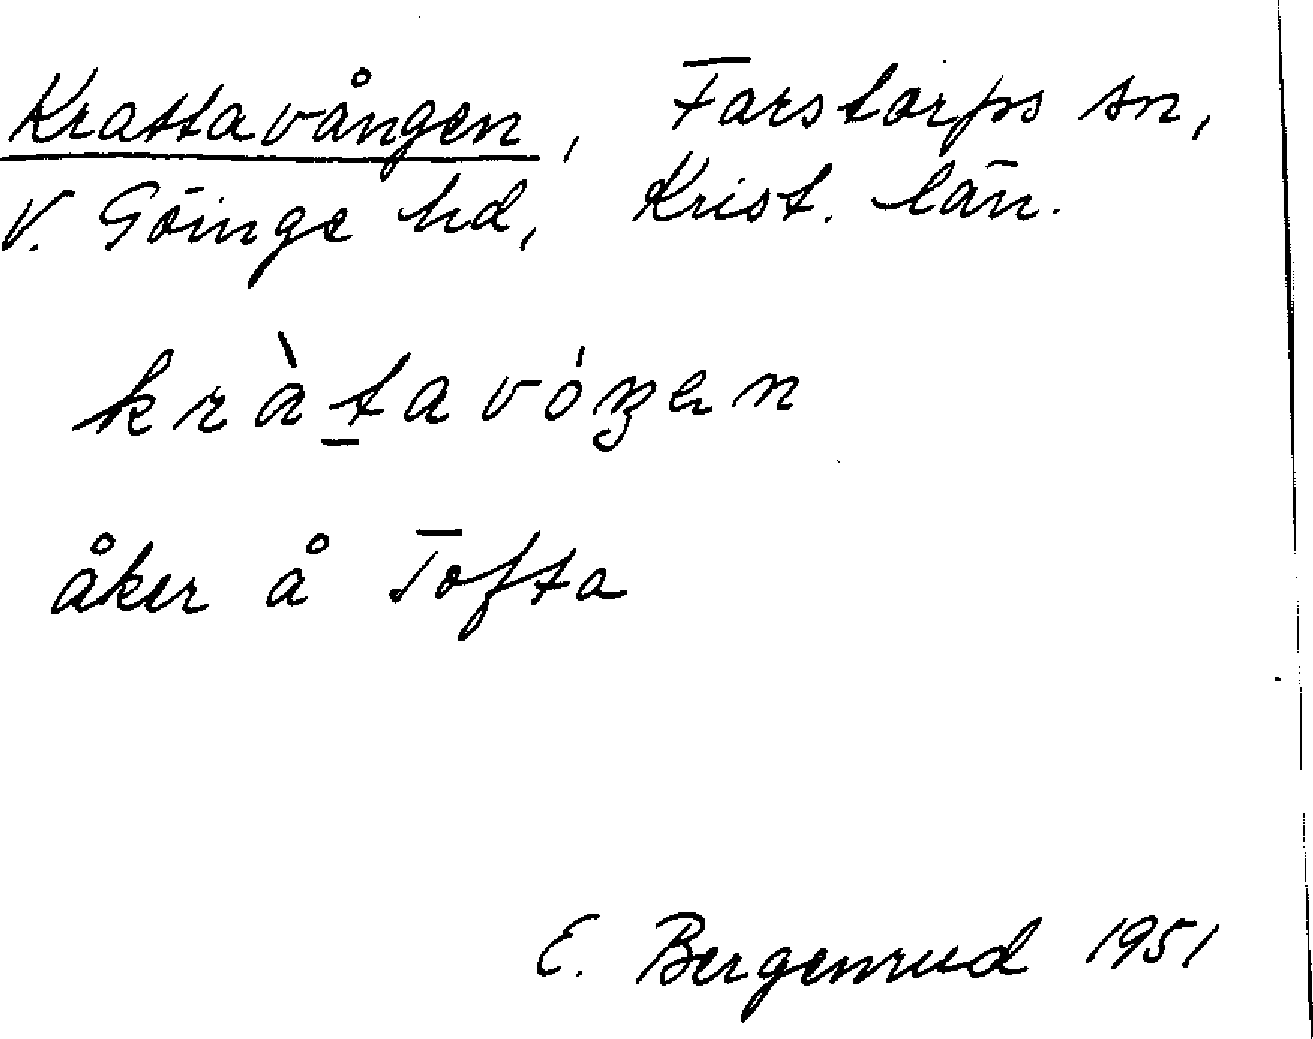 Krattavången, Farstorps sn,
V. Göinge hd, Krist. län.
kràt̲avóŋen
åker å Tofta
E. Bergenrud 1951